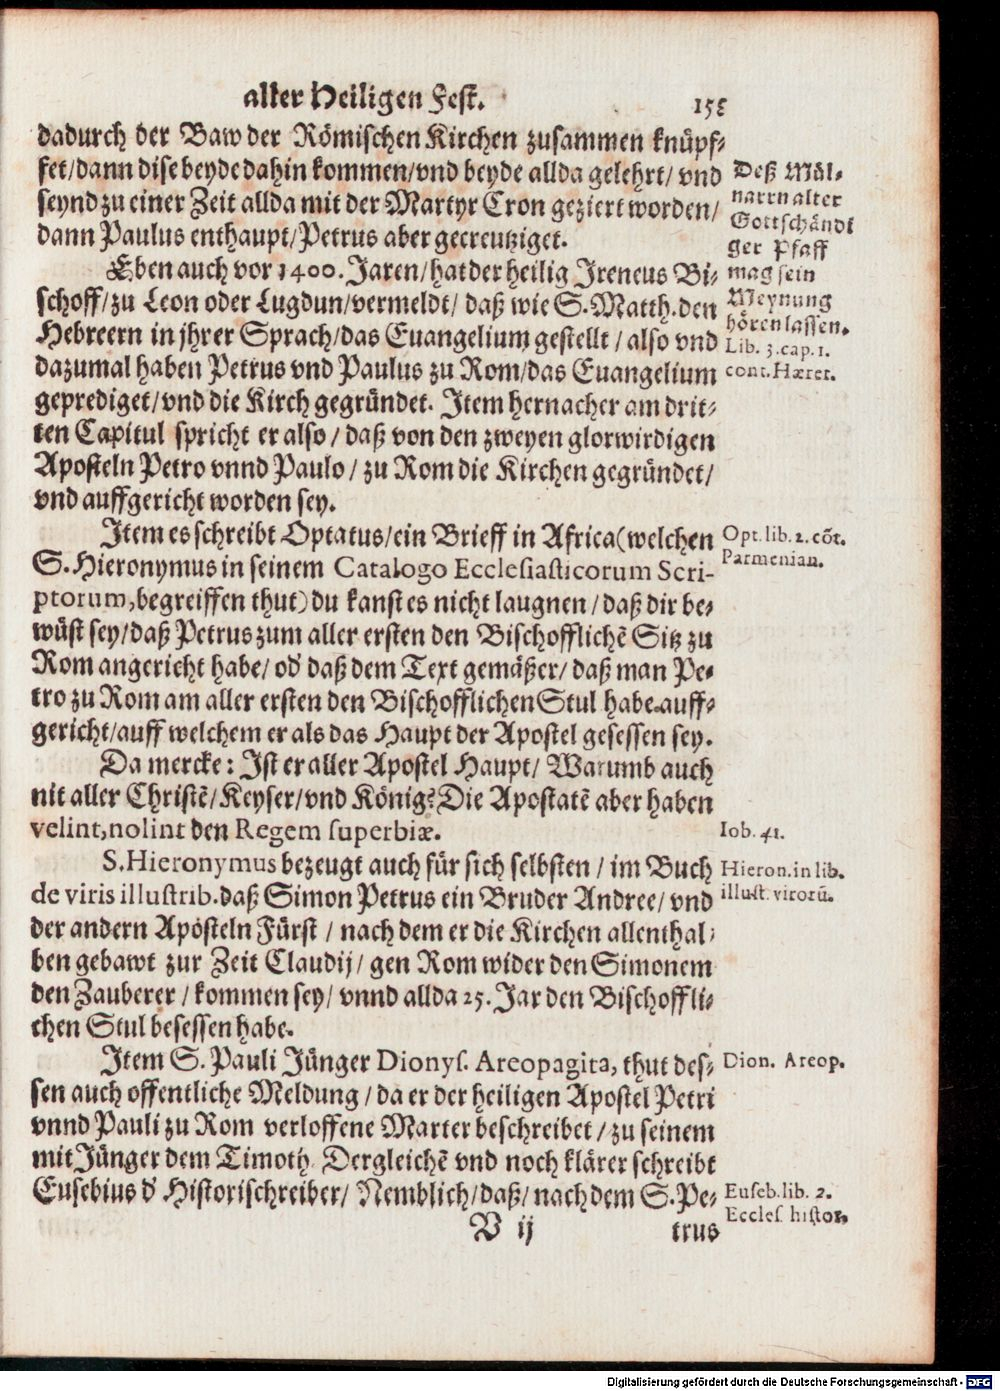 aller Heiligen Fest. 155
dadurch der Baw der Römischen Kirchen zusammen knüpf-
fet/dann dise beyde dahin kommen/vnd beyde allda gelehrt/ vnd
seynd zu einer Zeit allda mit der Martyr Cron geziert worden/
dann Paulus enthaupt/Petrus aber gecreutziget.
Deß Mäl-
narrn alter
Gottschändi
ger Pfaff
mag sein
Meynung
hören lassen.
Eben auch vor 1400. Jaren/hat der heilig Ireneus Bi-
schoff/zu Leon oder Lugdun/vermeldt/ daß wie S. Matth. den
Hebreern in jhrer Sprach/das Euangelium gestellt / also vnd
dazumal haben Petrus vnd Paulus zu Rom/das Euangelium
geprediget/vnd die Kirch gegründet. Item hernacher am drit-
ten Capitul spricht er also / daß von den zweyen glorwirdigen
Aposteln Petro vnnd Paulo / zu Rom die Kirchen gegründet/
vnd auffgericht worden sey.
Lib. 3. cap. 1.
cont. Hæret.
Item es schreibt Optatus/ein Brieff in Africa (welchen
S. Hieronymus in seinem Catalogo Ecclesiasticorum Scri-
ptorum, begreiffen thut) du kanst es nicht laugnen / daß dir be-
wüst sey/daß Petrus zum aller ersten den Bischofflichē Sitz zu
Rom angericht habe/ od' daß dem Text gemäßer/ daß man Pe-
tro zu Rom am aller ersten den Bischofflichen Stul habe auff-
gericht/auff welchem er als das Haupt der Apostel gesessen sey.
Opt. lib. 2. cōt.
Parmenian.
Da mercke: Ist er aller Apostel Haupt/ Warumb auch
nit aller Christē/Keyser/vnd König? Die Apostatē aber haben
velint, nolint den Regem superbiæ.
Iob. 41.
S. Hieronymus bezeugt auch für sich selbsten / im Buch
de viris illustrib. daß Simon Petrus ein Bruder Andree/ vnd
der andern Aposteln Fürst / nach dem er die Kirchen allenthal-
ben gebawt zur Zeit Claudij/ gen Rom wider den Simonem
den Zauberer / kommen sey/ vnnd allda 25. Jar den Bischoffli-
chen Stul besessen habe.
Hieron. in lib.
illust. virorū.
Item S. Pauli Jünger Dionys. Areopagita, thut des-
sen auch offentliche Meldung / da er der heiligen Apostel Petri
vnnd Pauli zu Rom verloffene Marter beschreibet / zu seinem
mit Jünger dem Timoth. Dergleichē vnd noch klärer schreibt
Eusebius d' Historischreiber/ Nemblich/daß/ nach dem S. Pe-
Dion. Areop.
Euseb. lib. 2.
Eccles. histor.
V ij trus
Digitalisierung gefördert durch die Deutsche Forschungsgemeinschaft - DFG